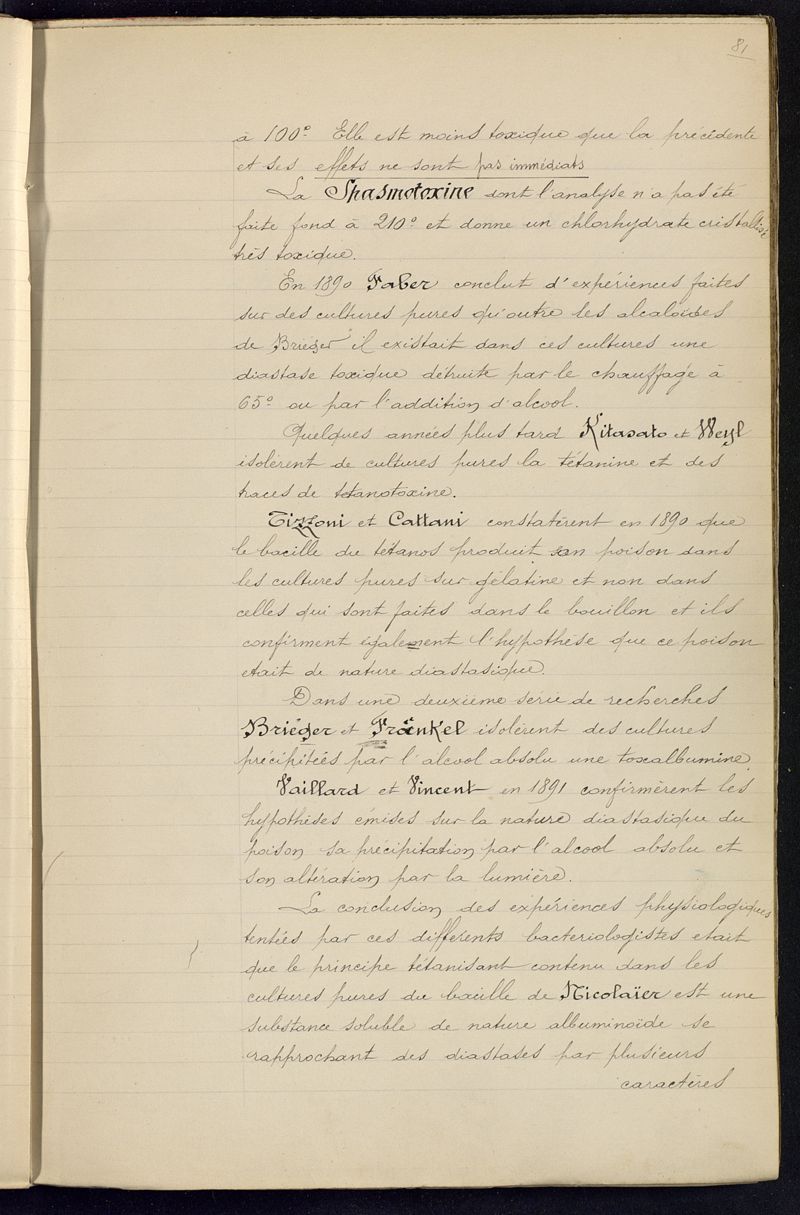 81
à 100° Elle est moins toxique que la précédente
et ses effets ne sont pas immédiats
La Spasmotoxine dont l'analyse n'a pas été
faite fond à 210° et donne un chlorhydrate cristallisé
très toxique.
En 1890 Faber conclut d'expériences faites
sur des cultures pures qu'outre les alcaloïdes
de Brieger il existait dans ces cultures une
diastase toxique détruite par le chauffage à
65° ou par l'addition d'alcool.
Quelques années plus tard Kitasato et Weyl
isolèrent de cultures pures la tétanine et des
traces de tétanotoxine.
Tizzoni et Cattani constatèrent en 1890 que
le bacille du tétanos produit son poison dans
les cultures pures sur gélatine et non dans
celles qui sont faites dans le bouillon et ils
confirment également l'hypothèse que ce poison
etait de nature diastasique.
Dans une deuxième série de recherches
Briéger et Fraënkel isolèrent des cultures
précipitées par l'alcool absolu une toxalbumine.
Vaillard et Vincent en 1891 confirmèrent les
hypothèses émises sur la nature diastasique du
poison sa précipitation par l'alcool absolu et
son altération par la lumière.
La conclusion des expériences physiologiques
tentées par ces différents bacteriologistes etait
que le principe tétanisant contenu dans les
cultures pures du bacille de Nicolaïer est une
substance soluble de nature albuminoïde se
rapprochant des diastases par plusieurs
caractères